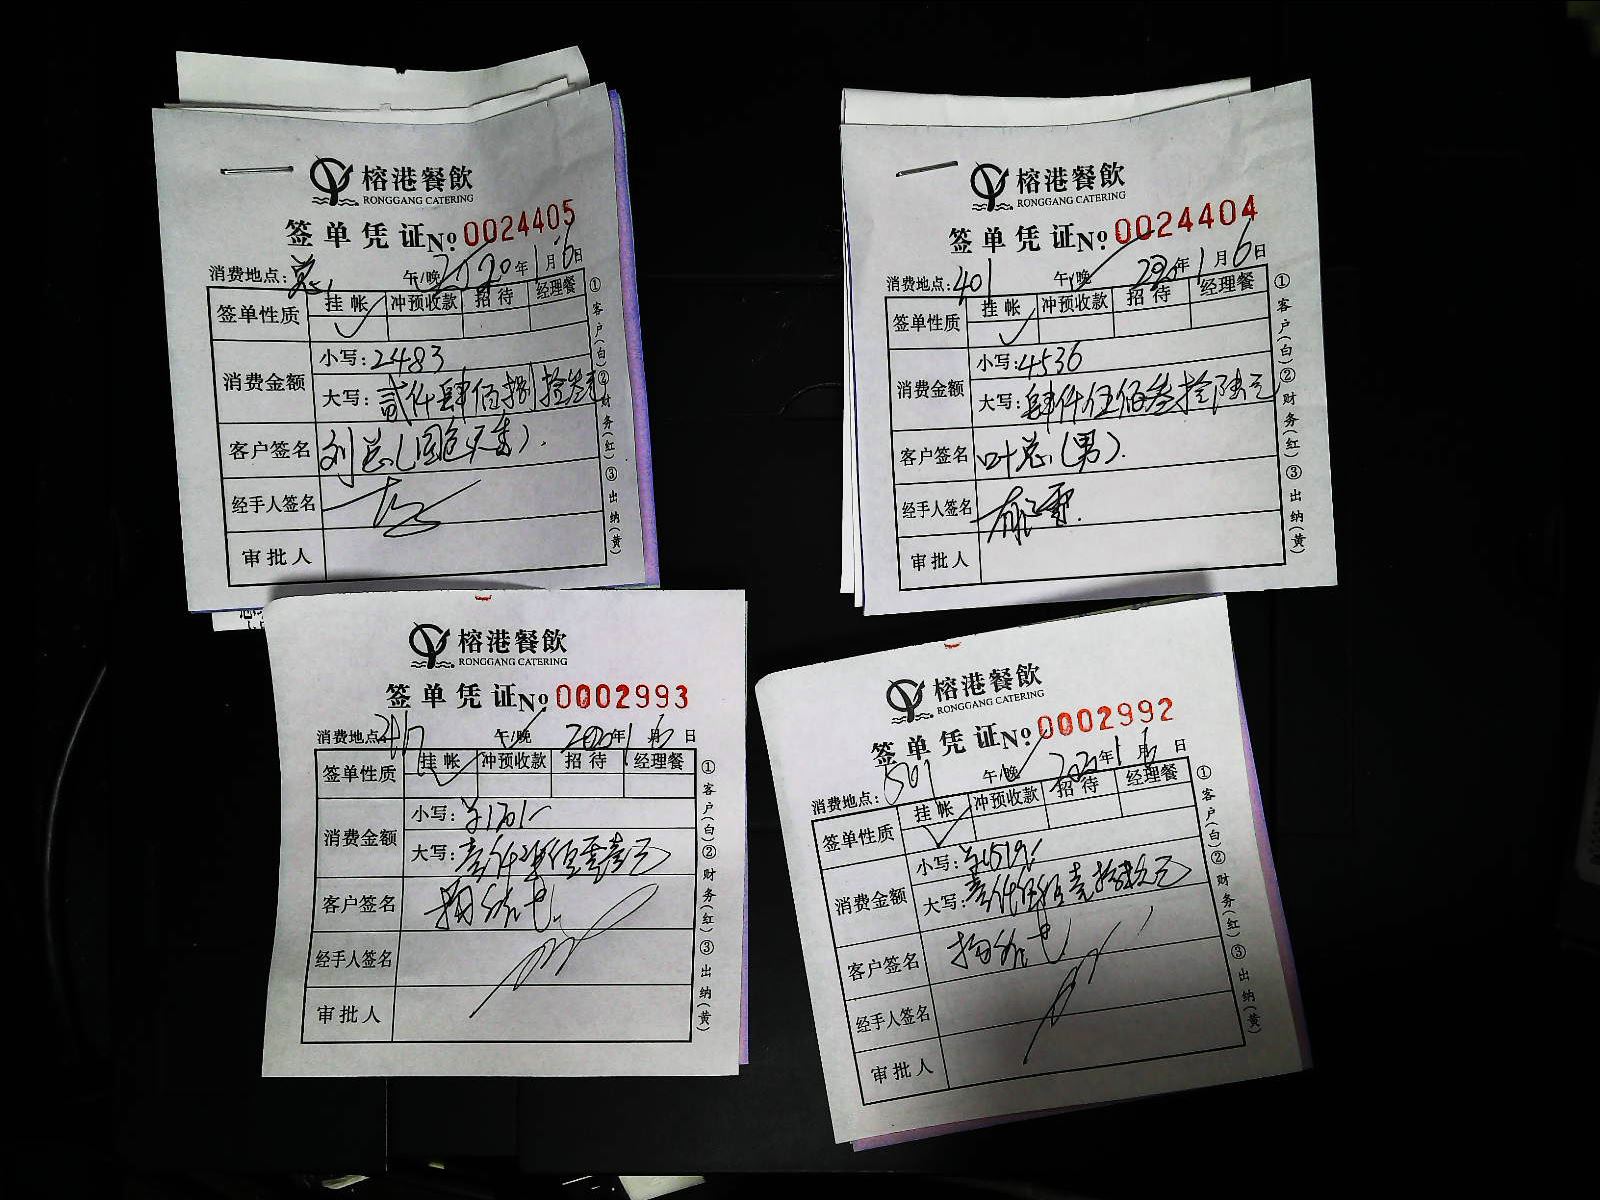 榕港餐飲
RONGGANG CATERING
签单凭证 No 0024405
消费地点: 总 午/晚 2020年1月6日
签单性质 挂帐 冲预收款 招待 经理餐
✓
消费金额 小写: 2483
大写: 贰仟肆佰捌拾叁元
客户签名 刘总(国色天香).
经手人签名
审批人
①客户(白)②财务(红)③出纳(黄)
榕港餐飲
RONGGANG CATERING
签单凭证 No 0024404
消费地点: 401 午/晚 2020年1月6日
签单性质 挂帐 冲预收款 招待 经理餐
✓
消费金额 小写: 4536
大写: 肆仟伍佰叁拾陆元
客户签名 叶总(男).
经手人签名
审批人
①客户(白)②财务(红)③出纳(黄)
榕港餐飲
RONGGANG CATERING
签单凭证 No 0002993
消费地点: 午/晚 2020年1月6日
签单性质 挂帐 冲预收款 招待 经理餐
✓
消费金额 小写: ¥1701-
大写: 壹仟柒佰零壹元
客户签名
经手人签名
审批人
①客户(白)②财务(红)③出纳(黄)
榕港餐飲
RONGGANG CATERING
签单凭证 No 0002992
消费地点: 501 午/晚 2020年1月6日
签单性质 挂帐 冲预收款 招待 经理餐
✓
消费金额 小写: ¥1519-
大写: 壹仟伍佰壹拾玖元
客户签名
经手人签名
审批人
①客户(白)②财务(红)③出纳(黄)